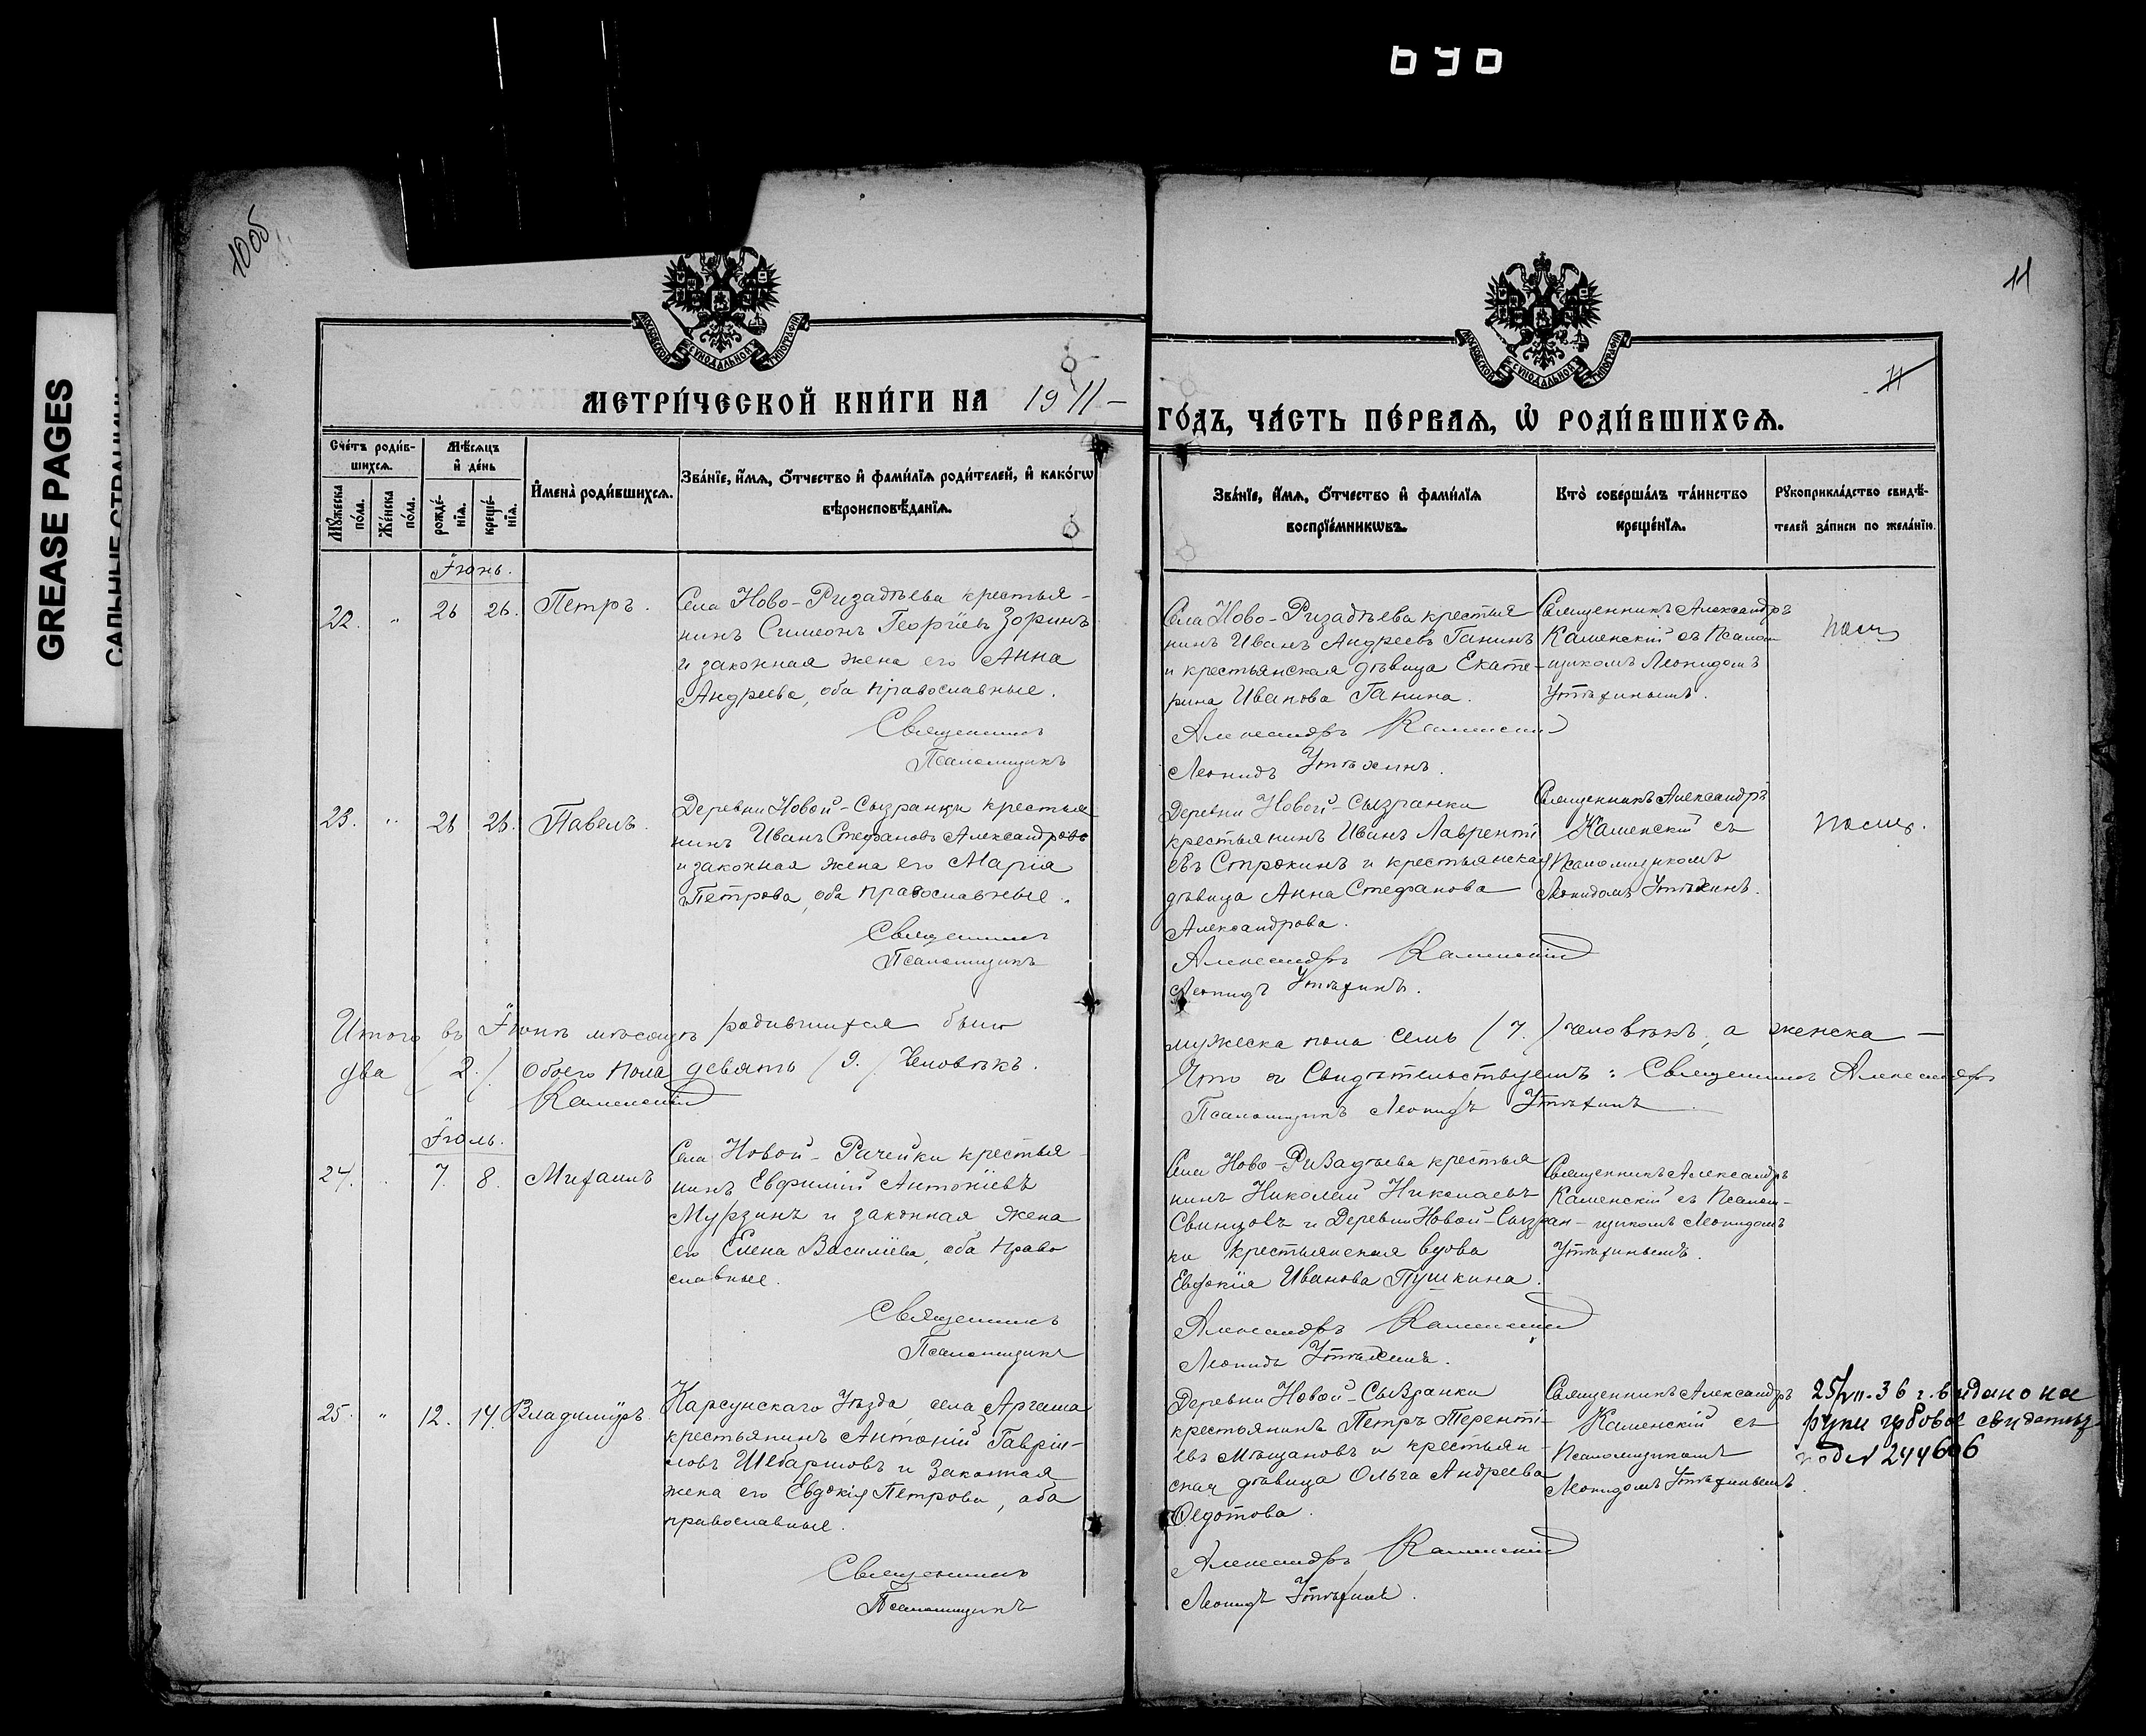 GREASE PAGES
10об
11
МОСКОВСКОЙ СУНОДАЛЬНОЙ ТИПОГРАФІИ
МОСКОВСКОЙ СУНОДАЛЬНОЙ ТИПОГРАФІИ
МЕТРИ́ЧЕСКОЙ КНИ́ГИ НА 1911 –
11
ГО́ДЪ, ЧА́СТЬ ПЕ́РВАѦ, Ѡ РОДИ́ВШИХСѦ.
Сче́тъ роди́в-
шихсѧ.
Мꙋжеска по́ла.
Же́нска по́ла.
Мѣ́сѧцъ и де́нь
рожде́-нїѧ.
креще́-нїѧ.
Имена̀ роди́вшихсѧ.
Зва́нїе, и́мѧ, о́тчество и фами́лїѧ роди́телей, и како́гѡ
вѣроисповѣ́данїѧ.
Зва́нїе, и́мѧ, о́тчество и фами́лїѧ
воспрїе́мникѡвъ.
Кто̀ соверша́лъ та́инство
креще́нїѧ.
Рꙋкоприкла́дство свидѣ́-
телей за́писи по жела́нїю.
Іюнь.
22. " 26 26. Петръ.
Села Ново-Ризадѣева крестья-
нинъ Симеонъ Георгіевъ Зоринъ
и законная жена его Анна
Андреева, оба православные.
Священникъ
Псаломщикъ
Села Ново-Ризадѣева крестья
нинъ Иванъ Андреевъ Ганинъ
и крестьянская дѣвица Екате-
рина Иванова Ганина.
Александръ Каменскій
Леонидъ Утѣхинъ.
Священникъ Александръ
Каменскій съ Псалом
щикомъ Леонидомъ
Утѣхинымъ.
23. " 26 26. Павелъ.
Деревни Новой-Сызранки крестья
нинъ Иванъ Стефановъ Александровъ
и законная жена его Марія
Петрова, оба православные.
Священникъ
Псаломщикъ
Деревни Новой-Сызранки
крестьянинъ Иванъ Лаврентi
евъ Строкинъ и крестьянская
дѣвица Анна Стефанова
Александрова.
Александръ Каменскій
Леонидъ Утѣхинъ.
Священникъ Александръ
Каменскій съ
Псаломщикомъ
Леонидомъ Утѣхинъ.
Итого въ Іюнѣ мѣсяцѣ родившихся было
мужеска пола семь (7.) человѣкъ, а женска –
два (2.) Обоего пола девять (9.) Человѣкъ.
Что и Свидѣтельствуемъ: Священникъ Александръ
Каменскій
Псаломщикъ Леонидъ Утѣхинъ
Іюль.
24. " 7. 8. Михаилъ
Села Новой-Рачейки крестья-
нинъ Евфимій Антоніевъ
Мурзинъ и законная жена
его Елена Василіева, оба право
славные.
Священникъ
Псаломщикъ
Села Ново-Ризадѣева крестья
нинъ Николай Николаевъ
Свинцовъ и Деревни Новой-Сызран-
ки крестьянская вдова
Евдокія Иванова Пушкина.
Александръ Каменскій
Леонидъ Утѣхинъ.
Священникъ Александръ
Каменскій съ Псалом-
щикомъ Леонидомъ
Утѣхинымъ.
25. " 12. 14. Владиміръ.
Карсунскаго Уѣзда, села Аргаша
крестьянинъ Антоній Гавріи-
ловъ Шебаршовъ и Законная
жена его Евдокія Петрова, оба
православные.
Священникъ
Псаломщикъ
Деревни Новой-Сызранки
крестьянинъ Петръ Терентi-
евъ Мѣщановъ и крестьян-
ская дѣвица Ольга Андреева
Федотова.
Александръ Каменскій
Леонидъ Утѣхинъ.
Священникъ Александръ
Каменскій съ
Псаломщикомъ
Леонидомъ Утѣхинымъ.
25/VII.36 г. видано на
руки свидетел
под N 244606